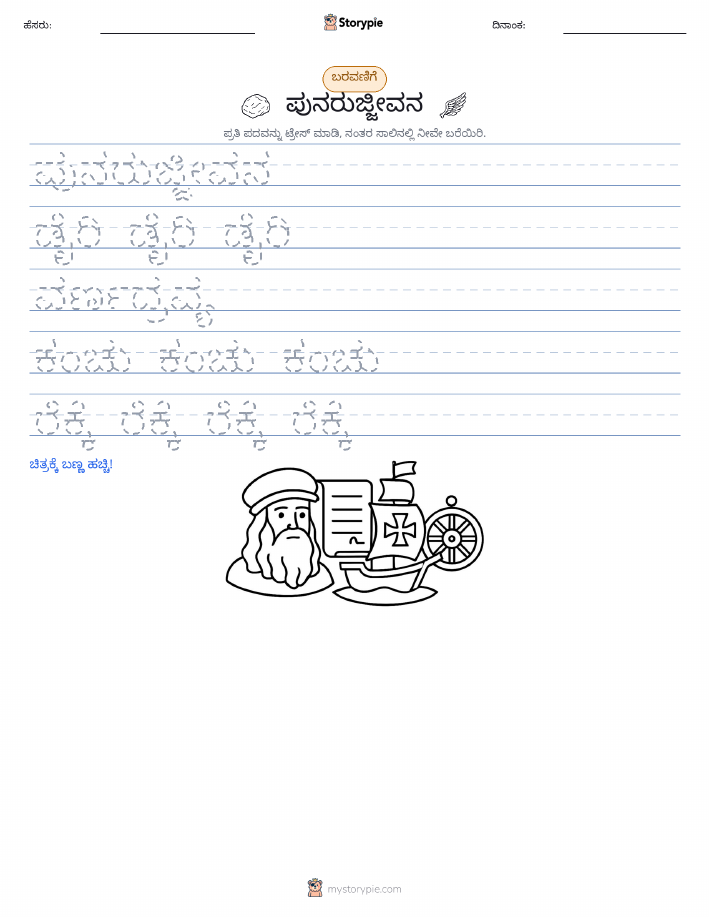 ಹೆಸರು:
Storypie
ದಿನಾಂಕ:
ಬರವಣಿಗೆ
ಪುನರುಜ್ಜೀವನ
ಪ್ರತಿ ಪದವನ್ನು ಟ್ರೇಸ್ ಮಾಡಿ, ನಂತರ ಸಾಲಿನಲ್ಲಿ ನೀವೇ ಬರೆಯಿರಿ.
ಪುನರುಜ್ಜೀವನ
ಡೈರಿ ಡೈರಿ ಡೈರಿ
ವರ್ಣದ್ರವ್ಯ
ಕಂಚು ಕಂಚು ಕಂಚು
ರೆಕ್ಕೆ ರೆಕ್ಕೆ ರೆಕ್ಕೆ ರೆಕ್ಕೆ
ಚಿತ್ರಕ್ಕೆ ಬಣ್ಣ ಹಚ್ಚಿ!
mystorypie.com